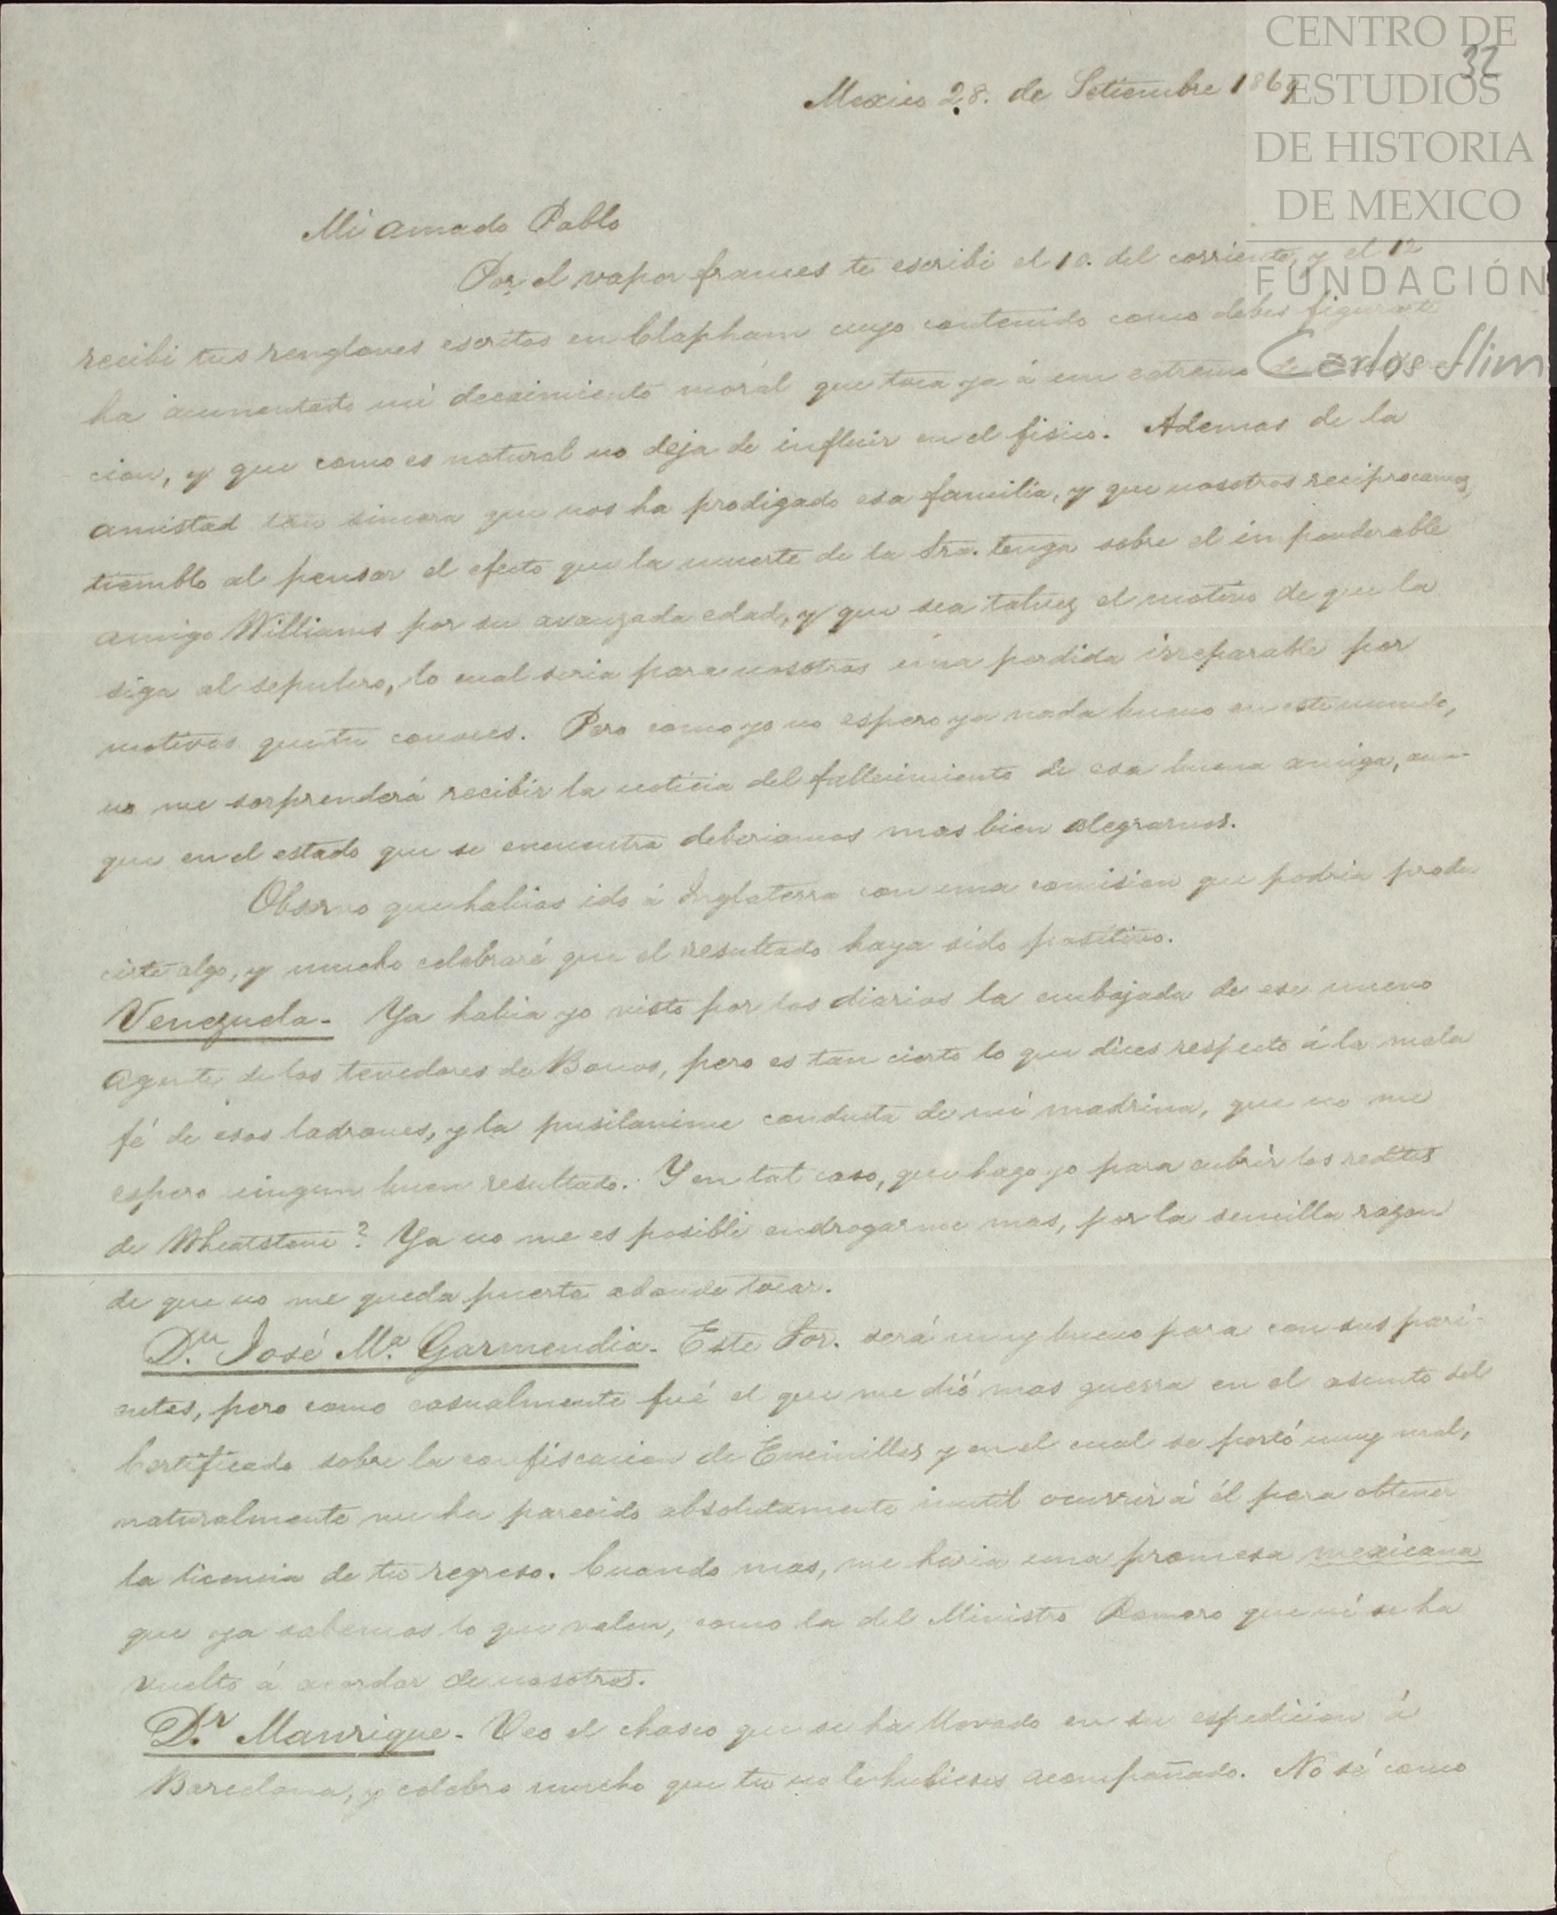 CENTRO DE
ESTUDIOS
DE HISTORIA
DE MEXICO
FUNDACIÓN
Carlos Slim
32
Mexico 28. de Setiembre 1869
Mi amado Pablo
Por el vapor frances te escribi el 10. del corriente, y el 12
recibi tus renglones escritos en Clapham cuyo contenido como debes figurarte
ha aumentado mi decaimiento moral que toca ya á un extremo de
cion, y que como es natural no deja de influir en el fisico. Ademas de la
amistad tan sincera que nos ha prodigado esa familia, y que nosotros reciprocamos,
tiemblo al pensar el efecto que la muerte de la Sra. tenga sobre el imponderable
amigo Williams por su avanzada edad, y que sea talvez el motivo de que la
siga al sepulcro, lo cual seria para nosotros una perdida irreparable por
motivos que tu conoces. Pero como yo no espero ya nada bueno en este mundo,
no me sorprenderá recibir la noticia del fallecimiento de esa buena amiga, aun-
que en el estado que se encuentra deberiamos mas bien alegrarnos.
Observo que habias ido á Inglaterra con una comision que podria produ
cirte algo, y mucho celebraré que el resultado haya sido positivo.
Venezuela- Ya habia yo visto por los diarios la embajada de ese nuevo
agente de los tenedores de Bonos, pero es tan cierto lo que dices respecto á la mala
fé de esos ladrones, y la pusilanime conducta de mi madrina, que no me
espero ningun buen resultado. Y en tal caso, que hago yo para cubrir los reditos
de Wheatstone? Ya no me es posible endrogarme mas, por la sencilla razon
de que no me queda puerta adonde tocar.
Dn José Ma. Garmendia- Este Sor. será muy bueno para con sus pari-
entes, pero como casualmente fué el que me dió mas guerra en el asunto del
Certificado sobre la confiscacion de Encinillas y en el cual se portó muy mal,
naturalmente me ha parecido absolutamente inutil ocurrir á él para obtener
la licencia de tu regreso. Cuando mas, me haria una promesa mexicana
que ya sabemos lo que valen, como la del Ministro Romero que ni se ha
vuelto á acordar de nosotros.
Dr Manrique- Veo el chasco que se ha llevado en su espedicion á
Barcelona, y celebro mucho que tu no le hubieses acompañado. No sé como